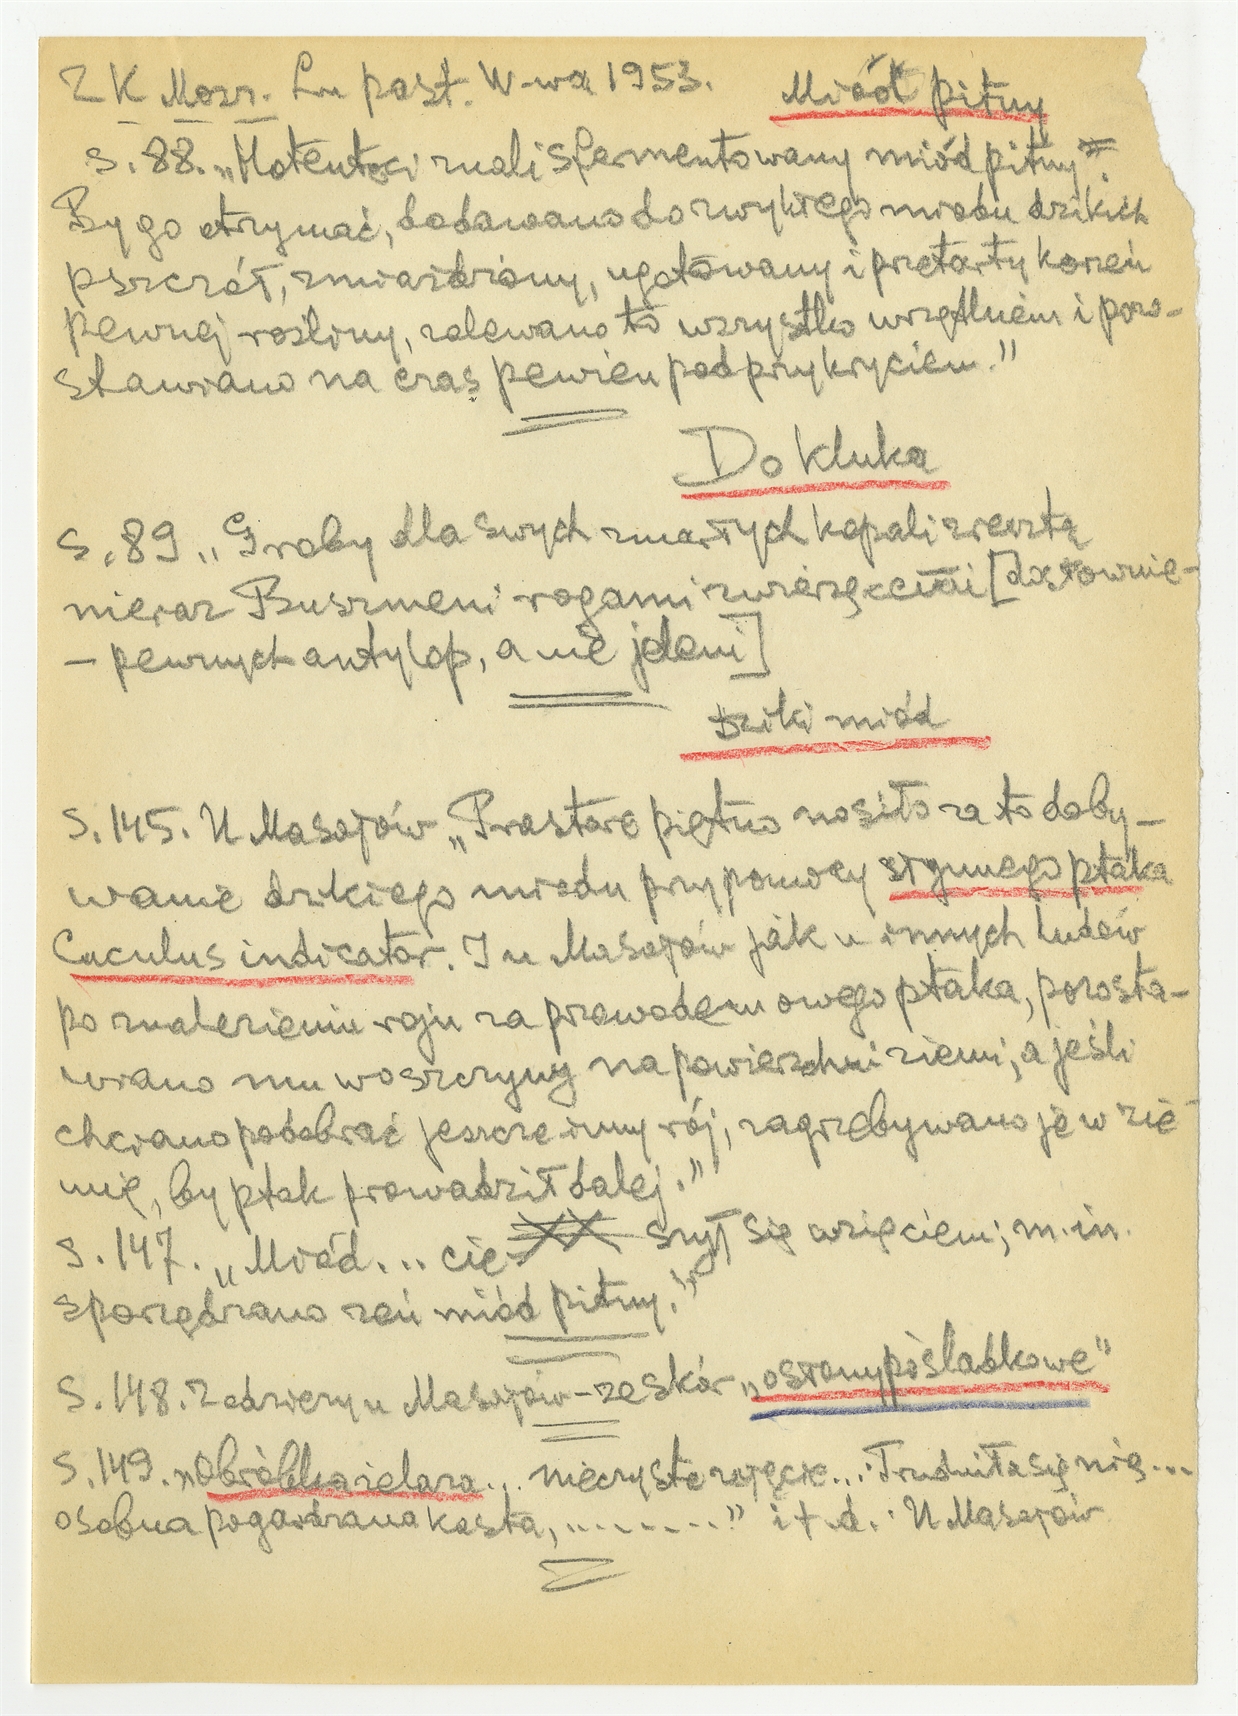 Z K Mosz. Lu past. W-wa 1953.
Miód pitny
s. 88. „Hotentoci znali sfermentowany miód pitny".
By go otrzymać, dodawano do zwykłego miodu dzikich
pszczół, zmiażdżony, ugotowany i przetarty korzeń
pewnej rośliny, zalewano to wszystko wrzątkiem i pozo-
stawiano na czas pewien pod przykryciem."
Do Kluka
s. 89 „Groby dla swych zmarłych kopali zresztą
nieraz Buszmeni rogami zwierzęcemi [dosłownie -
– pewnych antylop, a nie jeleni]
Dziki miód
s. 145. U Masajów „Prastare piętno nosiło za to doby-
wanie dzikiego miodu przy pomocy słynnego ptaka
Cuculus indicator. I u Masajów jak u innych ludów
po znalezieniu roju za przewodem owego ptaka, pozosta-
wiano mu woszczyny na powierzchni ziemi, a jeśli
chciano podebrać jeszcze inny rój, zagrzebywano je w zie-
mię, by ptak prowadził dalej."
s. 147. „Miód... cie szył się wzięciem; m. in.
sporządzano zeń miód pitny."
s. 148. Z odzieży u Masajów – ze skór „osłony pośladkowe"
s. 149. „Obróbka żelaza... nieczyste zajęcie... Trudniła się nią...
osobna pogardzana kasta, ........." i t. d. U Masajów